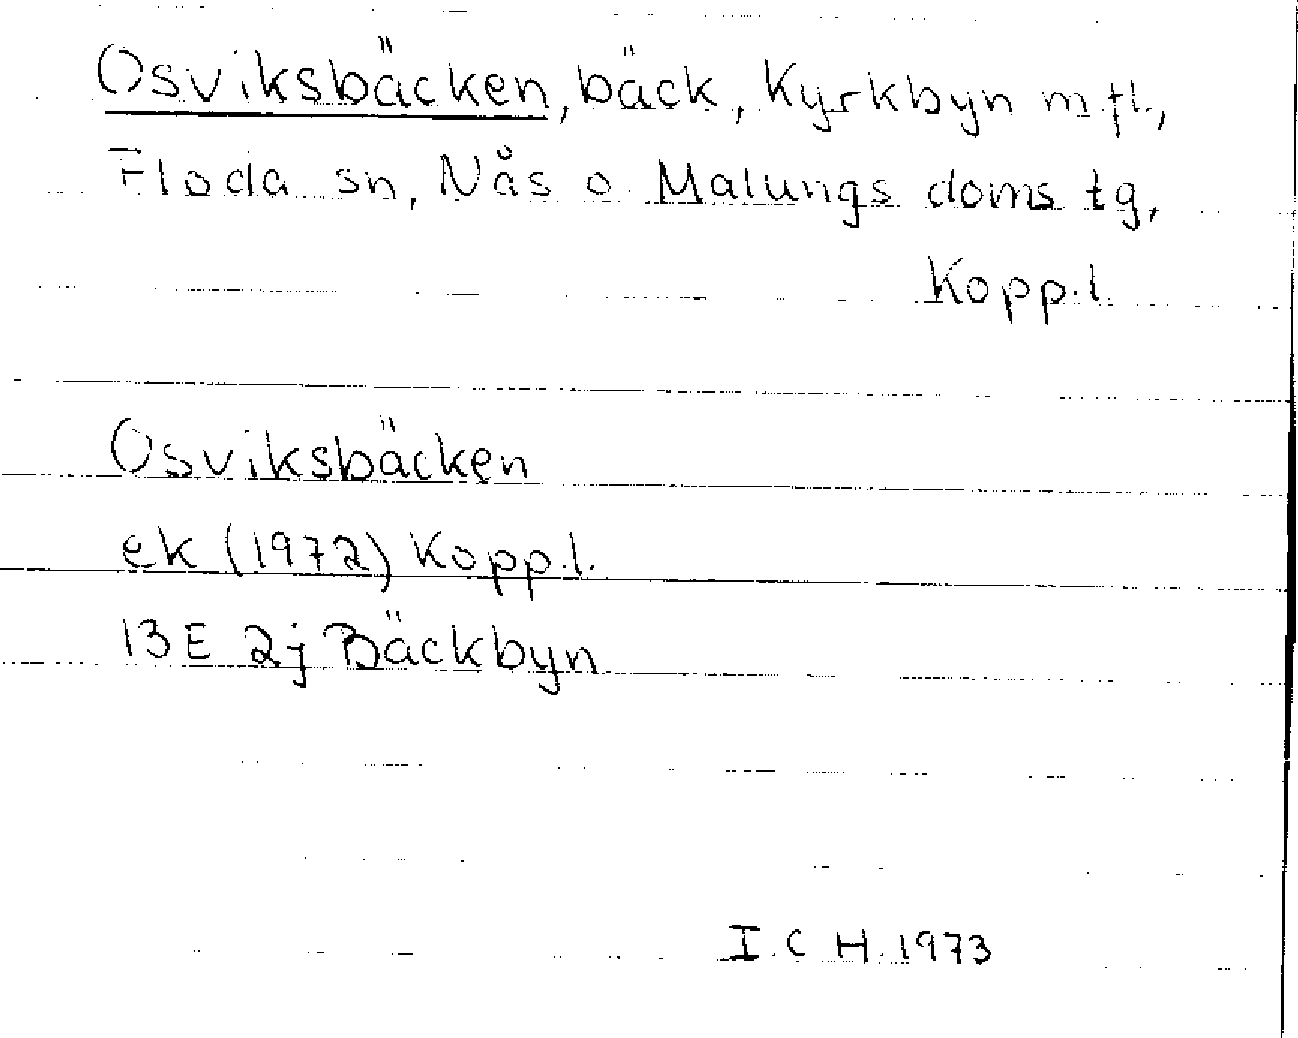 Osviksbäcken, bäck, Kyrkbyn m.fl.,
Floda sn, Nås o. Malungs doms tg,
Kopp.l.
Osviksbäcken
ek (1972) Kopp.l.
13E 2j Bäckbyn
I.C H. 1973